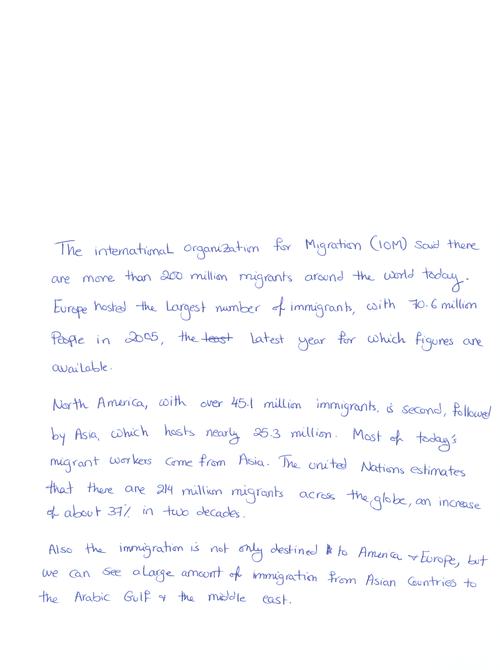 The international organization for Migration (IOM) said there
are more than 200 million migrants around the world today.
Europe hosted the Largest number of immigrants, with 70.6 million
People in 2005, the least latest year for which figures are
available.
North America, with over 45.1 million immigrants, is second, followed
by Asia, which hosts nearly 25.3 million. Most of today's
migrant workers come from Asia. The united Nations estimates
that there are 214 million migrants across the globe, an increase
of about 37% in two decades.
Also the immigration is not only destined to America & Europe, but
we can see a large amount of immigration from Asian Countries to
the Arabic Gulf & the middle east.